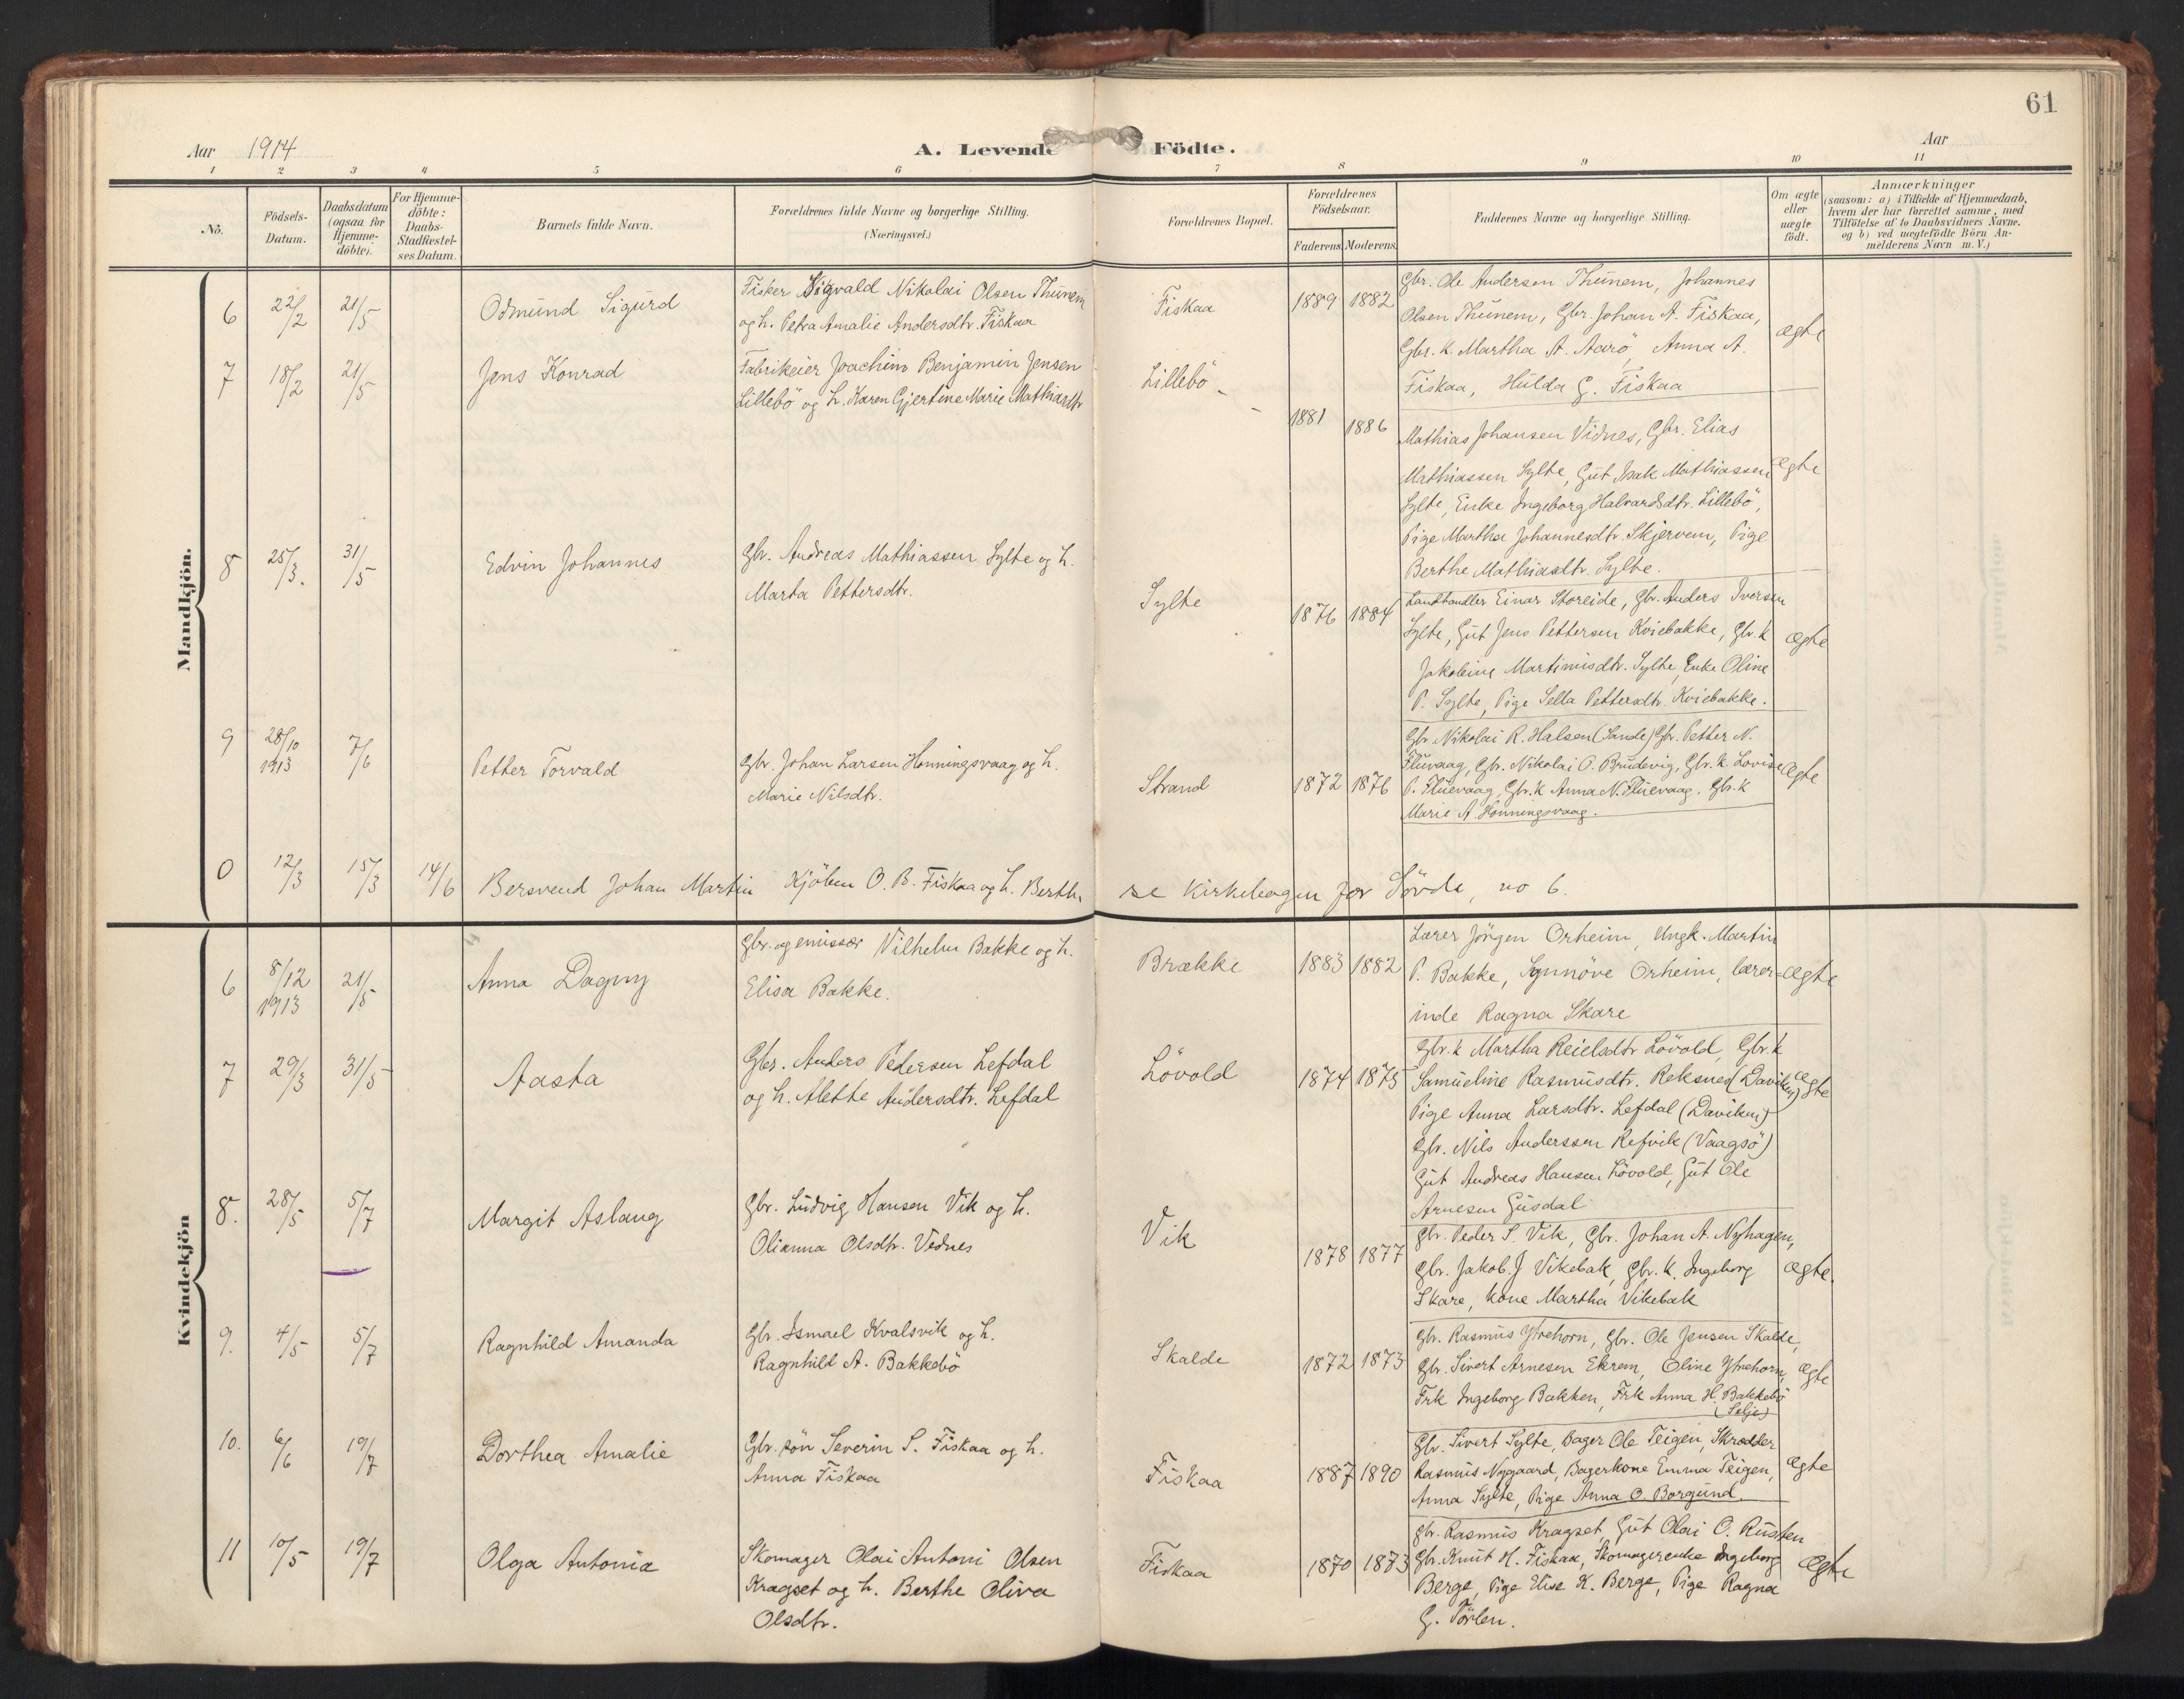 61
Aar 1914
A. Levende Födte.
Aar
1 2 3 4 5 6 7 8 9 10 11
No.
Födsels-Datum.
Daabsdatum (ogsaa for Hjemme-döbte).
For Hjemme-döbte: Daabs-Stadfæstel-ses Datum.
Barnets fulde Navn.
Forældrenes fulde Navne og borgerlige Stilling.
(Næringsvei.)
Forældrenes Bopæl.
Forældrenes Födselsaar.
Faderens. Moderens.
Faddernes Navne og borgerlige Stilling.
Om ægte eller uægte födt.
Anmærkninger
(saasom: a) i Tilfælde af Hjemmedaab, hvem der har forrettet samme, med Tilföielse af to Daabsvidners Navne, og b) ved uægtefödte Börn An-melderens Navn m. V.)
Mandkjön.
6 22/2 21/5 Odmund Sigurd
Fisker Sigvald Nikolai Olsen Thunem
og h. Petra Amalie Andersdtr. Fiskaa
Fiskaa 1889 1882
Gbr. Ole Andersen Thunem, Johannes
Olsen Thunem, Gbr. Johan A. Fiskaa,
Gbr. k. Martha A. Aarö, Anna A.
Fiskaa, Hulda G. Fiskaa
ægte
7 18/2 21/5 Jens Konrad
Fabrikeier Joachim Benjamin Jensen
Lillebö og h. Karen Gjertine Marie Mathiasdtr
Lillebö 1881 1886
Mathias Johansen Vidnes, Gbr. Elias
Mathiassen Sylte, Gut Isak Mathiassen
Sylte, Enke Ingeborg Halvardsdtr. Lillebö,
Pige Martha Johannesdtr. Skjervem, Pige
Berthe Mathiasdtr. Sylte.
ægte
8 25/3. 31/5 Edvin Johannes
Gbr. Andreas Mathiassen Sylte og h.
Marta Pettersdtr.
Sylte 1876 1884
Landhandler Einar Storeide, Gbr. Anders Iversen
Sylte, Gut Jens Pettersen Kviebakke, Gbr. k
Jakobine Martinusdtr. Sylte, Enke Oline
P. Sylte, Pige Sella Pettersdtr. Kviebakke.
ægte
9 28/10 1913 7/6 Petter Torvald
Gbr. Johan Larsen Honningsvaag og h.
Marie Nilsdtr.
Strand 1872 1876
Gbr. Nikolai R. Halsen (Sande) Gbr. Petter N.
Fluevaag, Gbr. Nikolai O. Brudevig, Gbr. k. Lovise
P. Fluevaag, Gbr. k Anna N. Fluevaag, Gbr. k
Marie A. Honningsvaag.
ægte
0 12/3 15/3 14/6 Bersvend Johan Martin Kjöbm O. B. Fiskaa og h. Berthe
se Kirkebogen for Sövde, no 6.
Kvindekjön
6 8/12 1913 21/5 Anna Dagny
Gbr. og emissær Vilhelm Bakke og h.
Elisa Bakke.
Brække 1883 1882
Lærer Jörgen Orheim, Ungk. Martin
P. Bakke, Synnöve Orheim, lærer-
inde Ragna Skare
ægte
7 29/3 31/5 Aasta
Gbr. Anders Pedersen Lefdal
og h. Alette Andersdtr. Lefdal
Lövold 1874 1875
Gbr. k Martha Reielsdtr Lövold, Gbr. k
Samueline Rasmusdtr. Reksnes (Daviken)
Pige Anna Larsdtr. Lefdal (Daviken)
Gbr. Nils Anderssen Refvik (Vaagsö)
Gut Andreas Hansen Lövold, Gut Ole
Arnesen Gusdal
ægte
8. 28/5 5/7 Margit Aslaug
Gbr. Ludvig Hansen Vik og h.
Olianna Olsdtr. Vednes
Vik 1878 1877
Gbr. Peder S. Vik, Gbr. Johan A. Nyhagen,
Gbr. Jakob. J Vikebak, Gbr. k. Ingeborg
Skare, kone Martha Vikebak
ægte.
9. 4/5 5/7 Ragnhild Amanda
Gbr. Ismael Kvalsvik og h.
Ragnhild A. Bakkebö
Skalde 1872 1873
Gbr. Rasmus Ytrehorn, Gbr. Ole Jensen Skalde,
Gbr. Sivert Arnesen Ekrem, Oline Ytrehorn,
Frk Ingeborg Bakken, Frk Anna H. Bakkebö
(Selje)
ægte
10. 6/6 19/7 Dorthea Amalie
Gbr. sön Severin S. Fiskaa og h.
Anna Fiskaa
Fiskaa 1887 1890
Gbr. Sivert Sylte, Bager Ole Teigen, Skrædder
Rasmus Nygaard, Bagerkone Emma Teigen,
Anna Sylte, Pige Anna O. Borgund.
ægte
11 10/5 19/7 Olga Antonia
Skomager Olai Antoni Olsen
Kragset og h. Berthe Oliva
Olsdtr.
Fiskaa 1870 1873
Gbr. Rasmus Kragset, Gut Olai O. Rusten
Gbr. Knut H. Fiskaa, Skomagerenke Ingeborg
Berge, Pige Elise K. Berge, Pige Ragna
G.
ægte